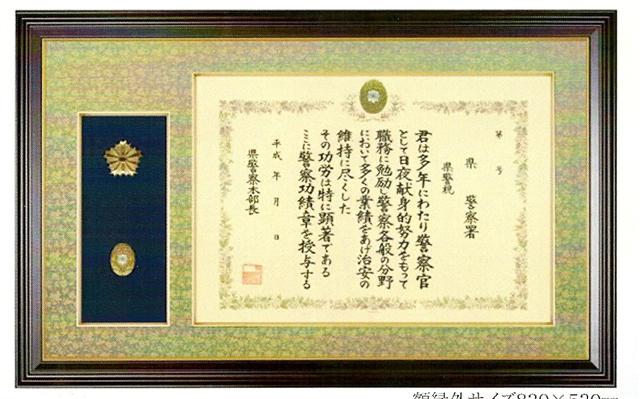 第　号
県　警察署
県警視
君は多年にわたり警察官
として日夜献身的努力をもって
職務に勉励し警察各般の分野
において多くの業績をあげ治安の
維持に尽くした
その功労は特に顕著である
ここに警察功績章を授与する
平成　年　月　日
県警察本部長
額縁外サイズ830×530mm